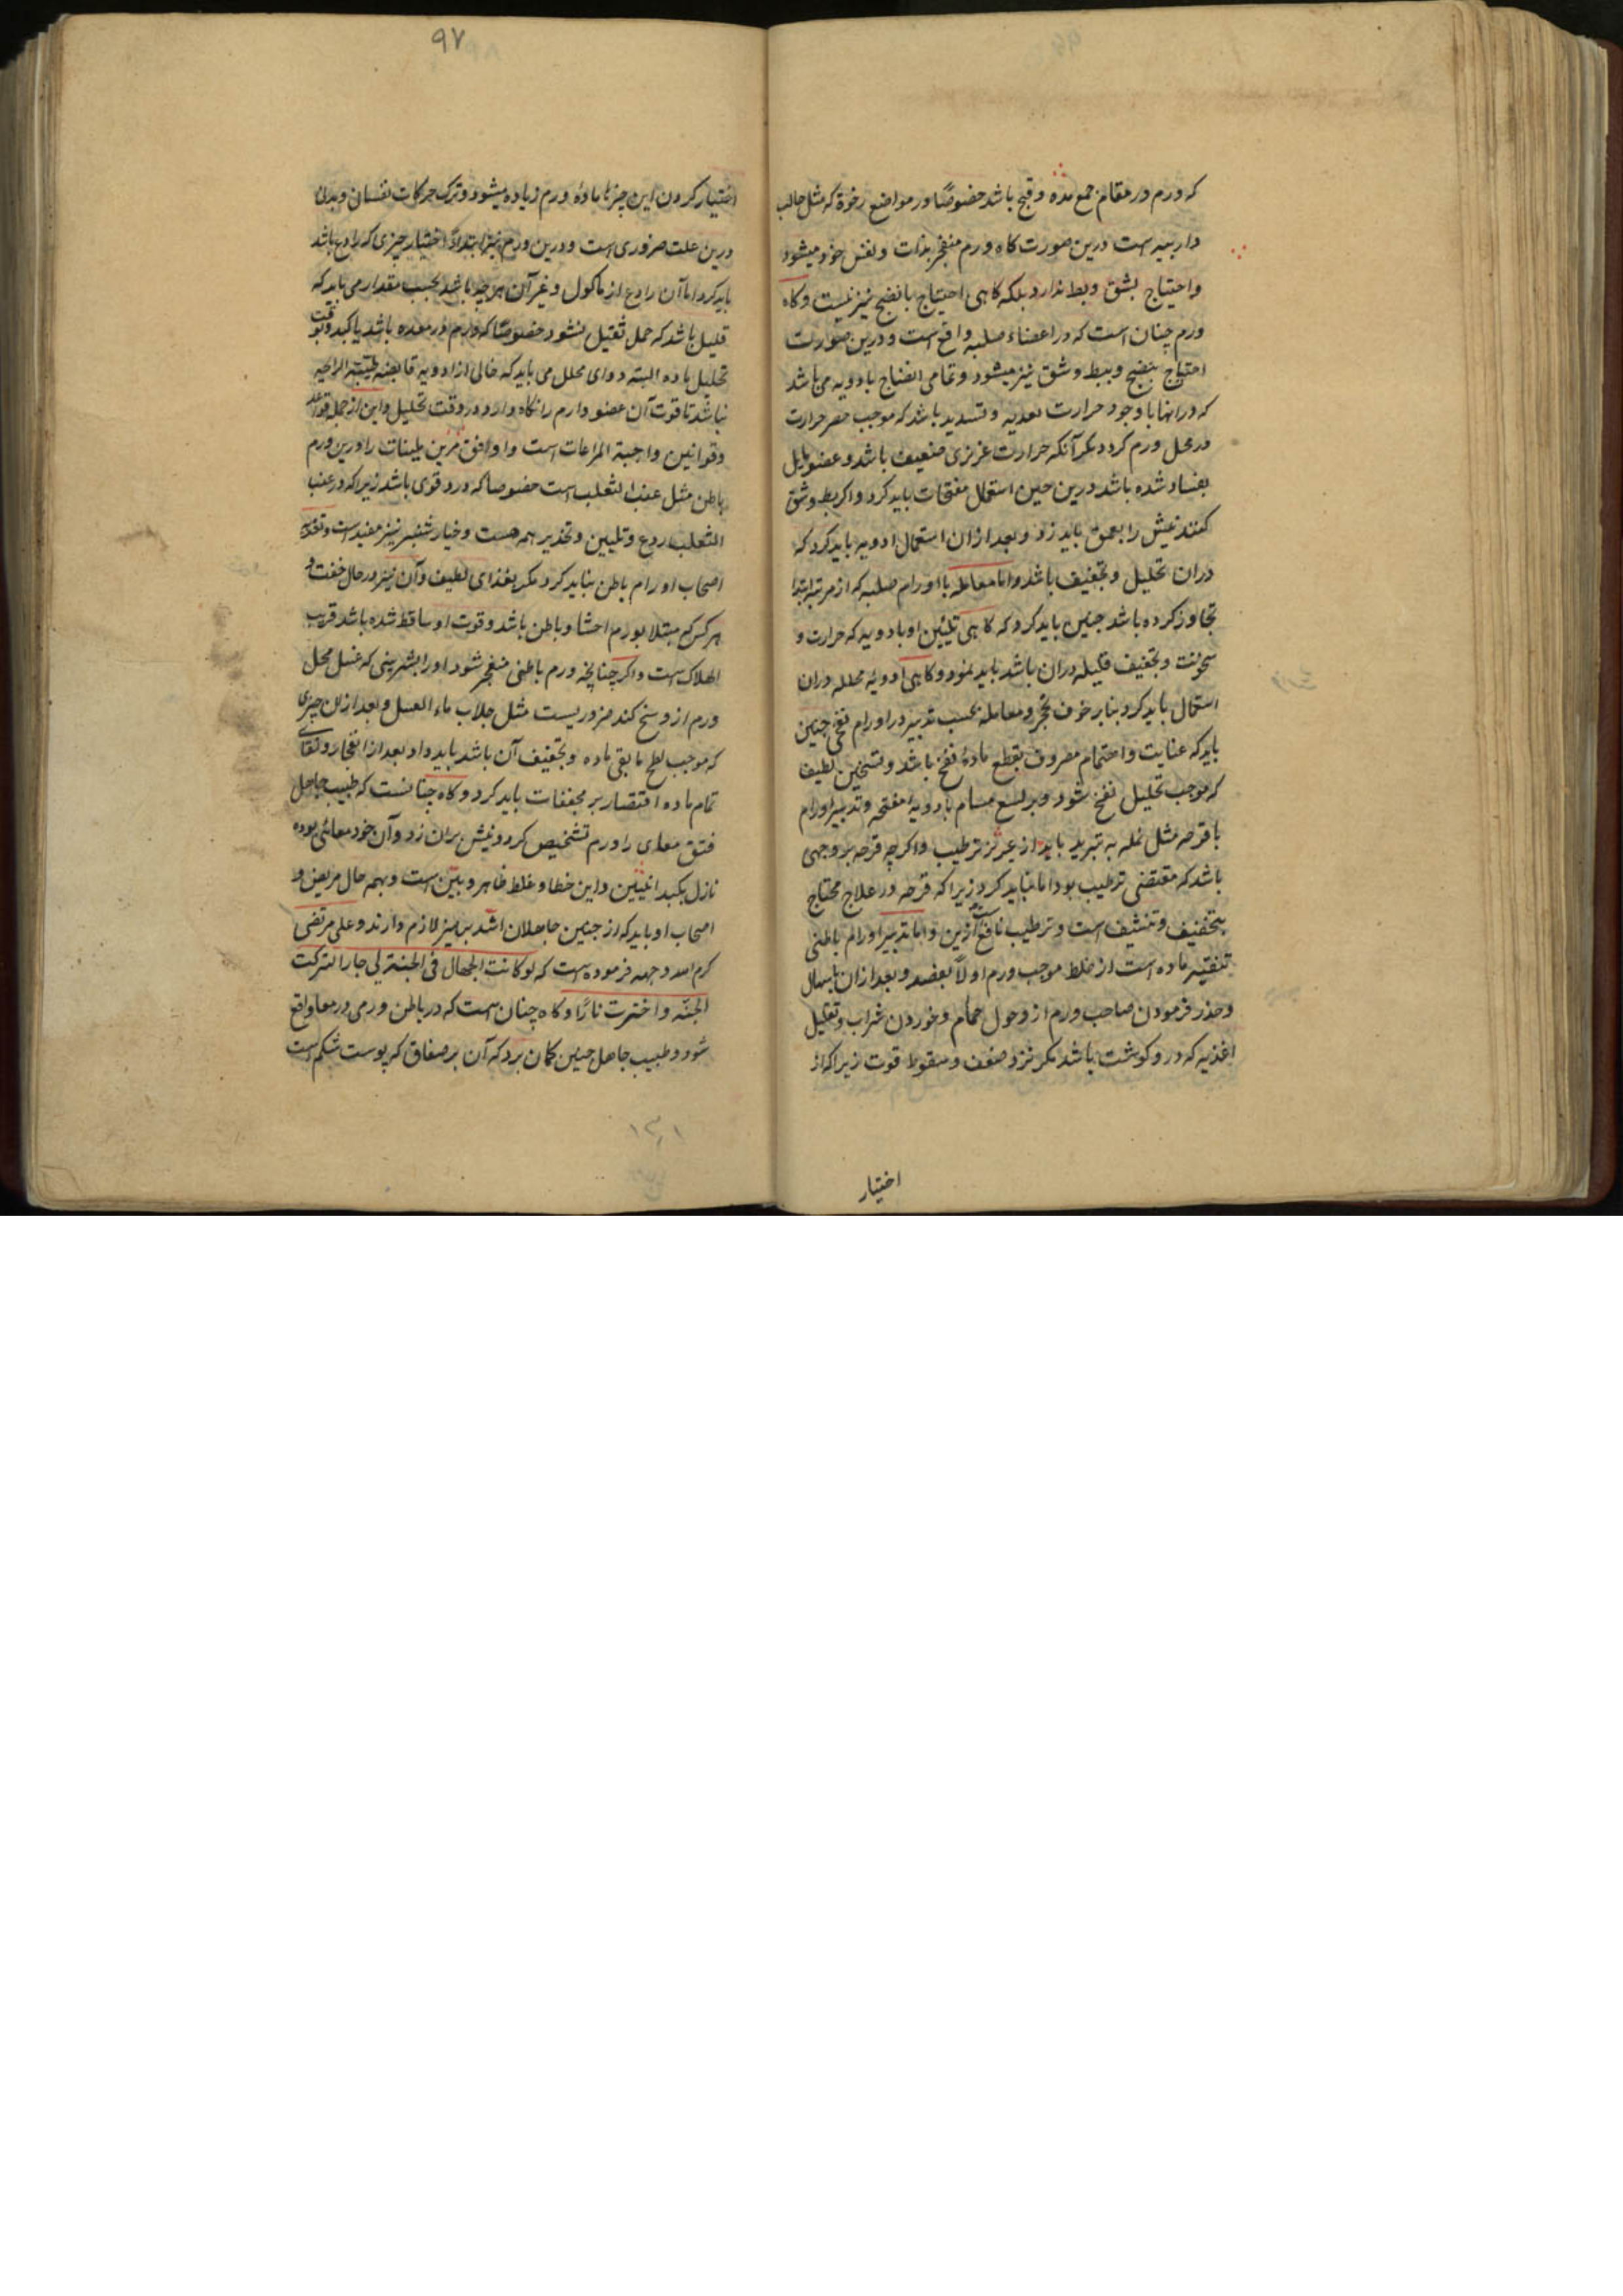 که ورم در مقام جمع مده و قیح باشد خصوصًا در مواضع رخوة که مثل حالب
دار بیه است درین صورت کاه ورم منفجر بذات و لنفس خود میشود
واحتیاج بشق و بط ندارد بلکه کاهی احتیاج بانضج نیز نیست وکاه
ورم چنان است که در اعضاء صلبه واقع است و درین صورت
احتیاج بنضج و ببط و شق نیز میشود و تمامی انضاج بادویه می باشد
که درانها با وجود حرارت تعدیه و تسدید باشد که موجب حصر حرارت
در محل ورم کردد مکر آنکه حرارت غریزی ضعیف باشد و عضو مایل
بفساد شده باشد درین حین استعمال مفتحات باید کرد و اکر بط و شق
کنند نیش را بعمق باید زد و بعد ازان استعمال ادویه باید کرد که
دران تحلیل و تجفیف باشد واما معامله با اورام صلبه که از مرتبه ابتدا
تجاوز کرده باشد چنین باید کرد که کاهی تلیین او بادویه که حرارت و
سخونت و تجفیف قلیله دران باشد باید نمود و کاهی ادویه محلله دران
استعمال باید کرد بنابر خوف تحجر و معامله بحسب تدبیر در اورام نفخی چنین
باید که عنایت و اهتمام مصروف بقطع مادهٔ نفخ باشد و تسخین لطیف
که موجب تحلیل نفخ شود و بر توسیع مسام بادویهٔ مفتحه و تدبیر اورام
با قرحه مثل نمله به تبرید باید از غیر ترطیب و اکر چه قرحه بر وجهی
باشد که مقتضی ترطیب بود اما نباید کرد زیرا که قرحه در علاج محتاج
بتجفیف و تنشیف است و ترطیب نافع آن نیست واما تدبیر اورام باطنی
تنقیه ماده است از خلط موجب ورم اولاً بفصد و بعد ازان باسهال
و حذر فرمودن صاحب ورم از دخول حمام و خوردن شراب و تقلیل
اغذیه که درو کوشت باشد مکر نزد ضعف و سقوط قوت زیرا که از
اختیار
۹۷
اختیار کردن این چیزها مادهٔ ورم زیاده میشود و ترک حرکات نفسانی و بدنی
درین علت ضروری است و درین ورم نیز ابتداءً اختیار چیزی که رادع باشد
باید کرد اما آن رادع از ماکول و غیر آن هر چه باشد بحسب مقدار می باید که
قلیل باشد که حمل ثقیل نشود خصوصًا که ورم در معده باشد یا کبد و بوقت
تحلیل ماده البته دوای محلل می باید که خالی از ادویه قابضه طیبة الرایحه
نباشد تا قوت آن عضو وارم را نکاه دارد در وقت تحلیل و این از جمله قواعد
وقوانین واجبة المراعات است واوافق ترین ملینات را درین ورم
باطن مثل عنب الثعلب است خصوصا که درد قوی باشد زیرا که در عنب
الثعلب ردع و تلیین و تخدیر همه هست و خیار شنبر نیز مفید است و تغذیه
اصحاب اورام باطن نباید کرد مکر بغذای لطیف وآن نیز در حال خفت و
هر کس که مبتلا بورم احشا و باطن باشد و قوت او ساقط شده باشد قریب
الهلاک است واکر چنانچه ورم باطنی منفجر شود او را بشربتی که غسل محل
ورم از وسخ کند ضروریست مثل جلاب ماء العسل و بعد ازان چیزی
که موجب لطح ما بقی ماده و تجفیف آن باشد باید داد بعد از انفجار و نقای
تمام ماده اقتصار بر مجففات باید کرد و کاه چنانست که طبیب جاهل
فتق معای را ورم تشخیص کرد و نیش بران زد وآن خود معائی بوده
نازل بکیسه انثیین واین خطا و غلط ظاهر و بیّن است و بهمه حال مریض و
اصحاب او باید که از چنین جاهلان اشد پرهیز لازم دارند و علی مرتضی
کرم الله وجهه فرموده است که لو کانت الجهال فی الجنة لی جارا لترکت
الجنّه و اخترت نارًا و کاه چنان است که در باطن ورمی در معا واقع
شود و طبیب جاهل چنین کمان برد که آن بر صفاق که پوست شکم است